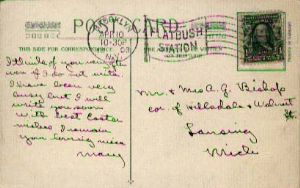 POST CARD
BROOKLYN, N.Y.
APR 10
10-30P
FLATBUSH
STATION
THIS SIDE FOR CORRESPONDENCE
I think of you very often
if I do not write.
I have been very
busy but I will
write you soon
with best Easter
wishes I remain
your loving niece
Mary
Mr. & Mrs A. G. Bishop
cor of Hillsdale & Walnut St.
Lansing
Mich